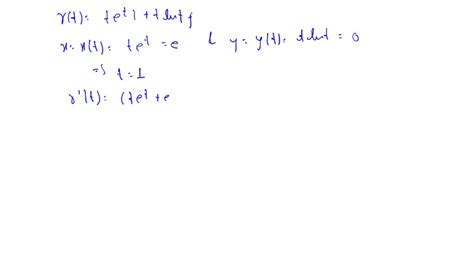 r(t): te^t i + t lnt j
x = x(t): te^t = e & y = y(t): t lnt = 0
=> t = 1
r'(t): (te^t + e